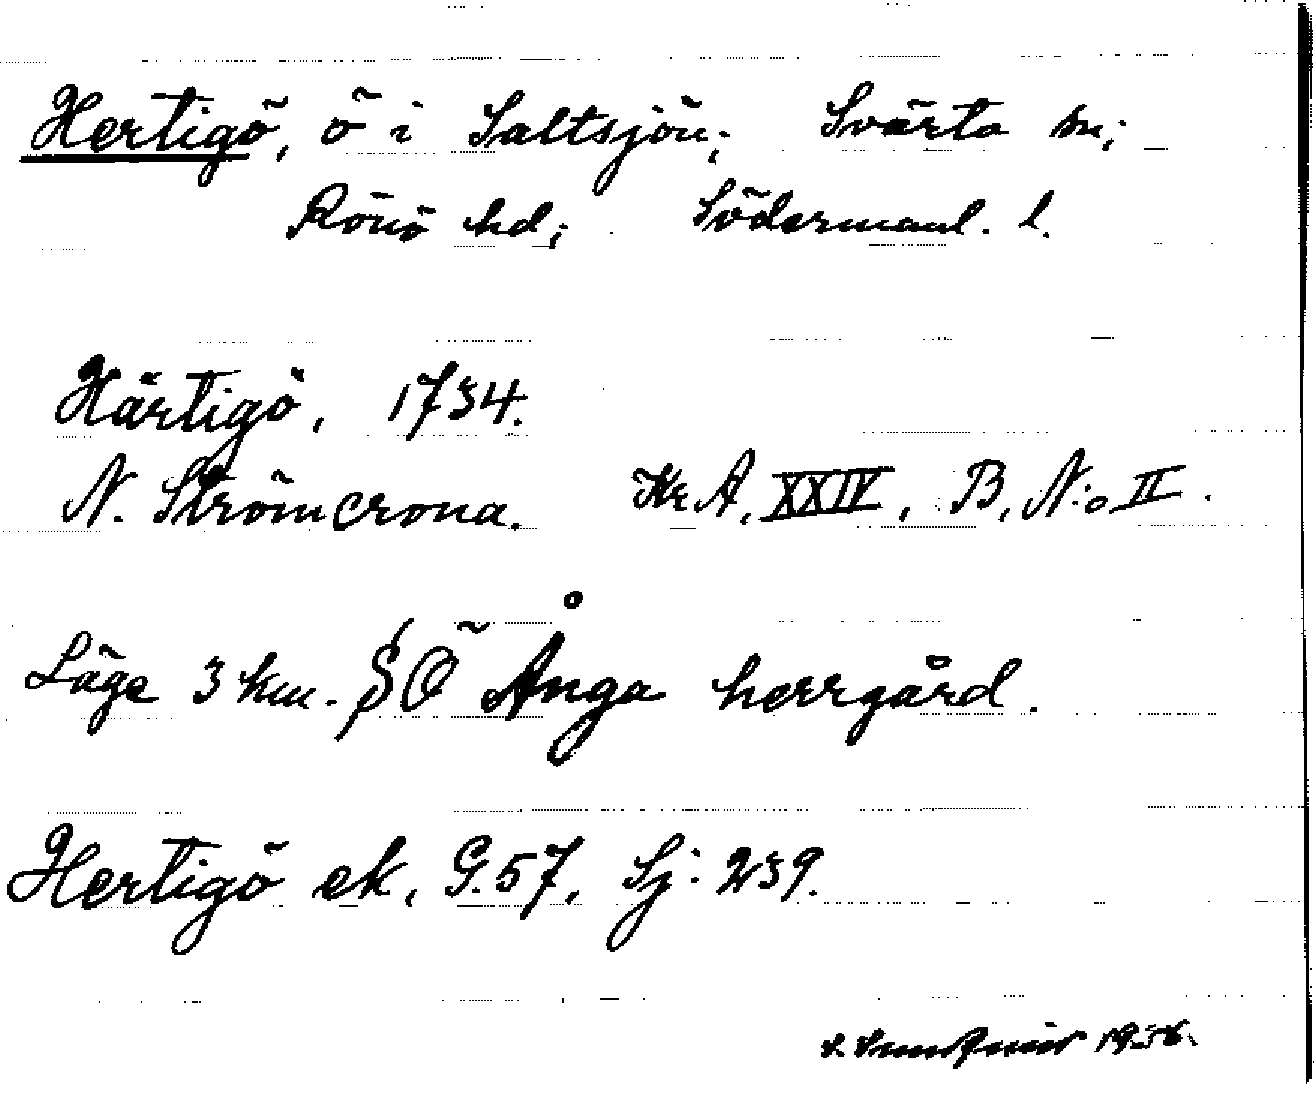 Hertigö, ö i Saltsjön; Svärta sn;
Rönö hd; Södermanl. l.
Härtigö, 1734.
N. Strömcrona. Kr A, XXIV, B, N:o II.
Läge 3 km. SÖ Ånga herrgård.
Hertigö ek, G.57, Sj: 239.
1956.